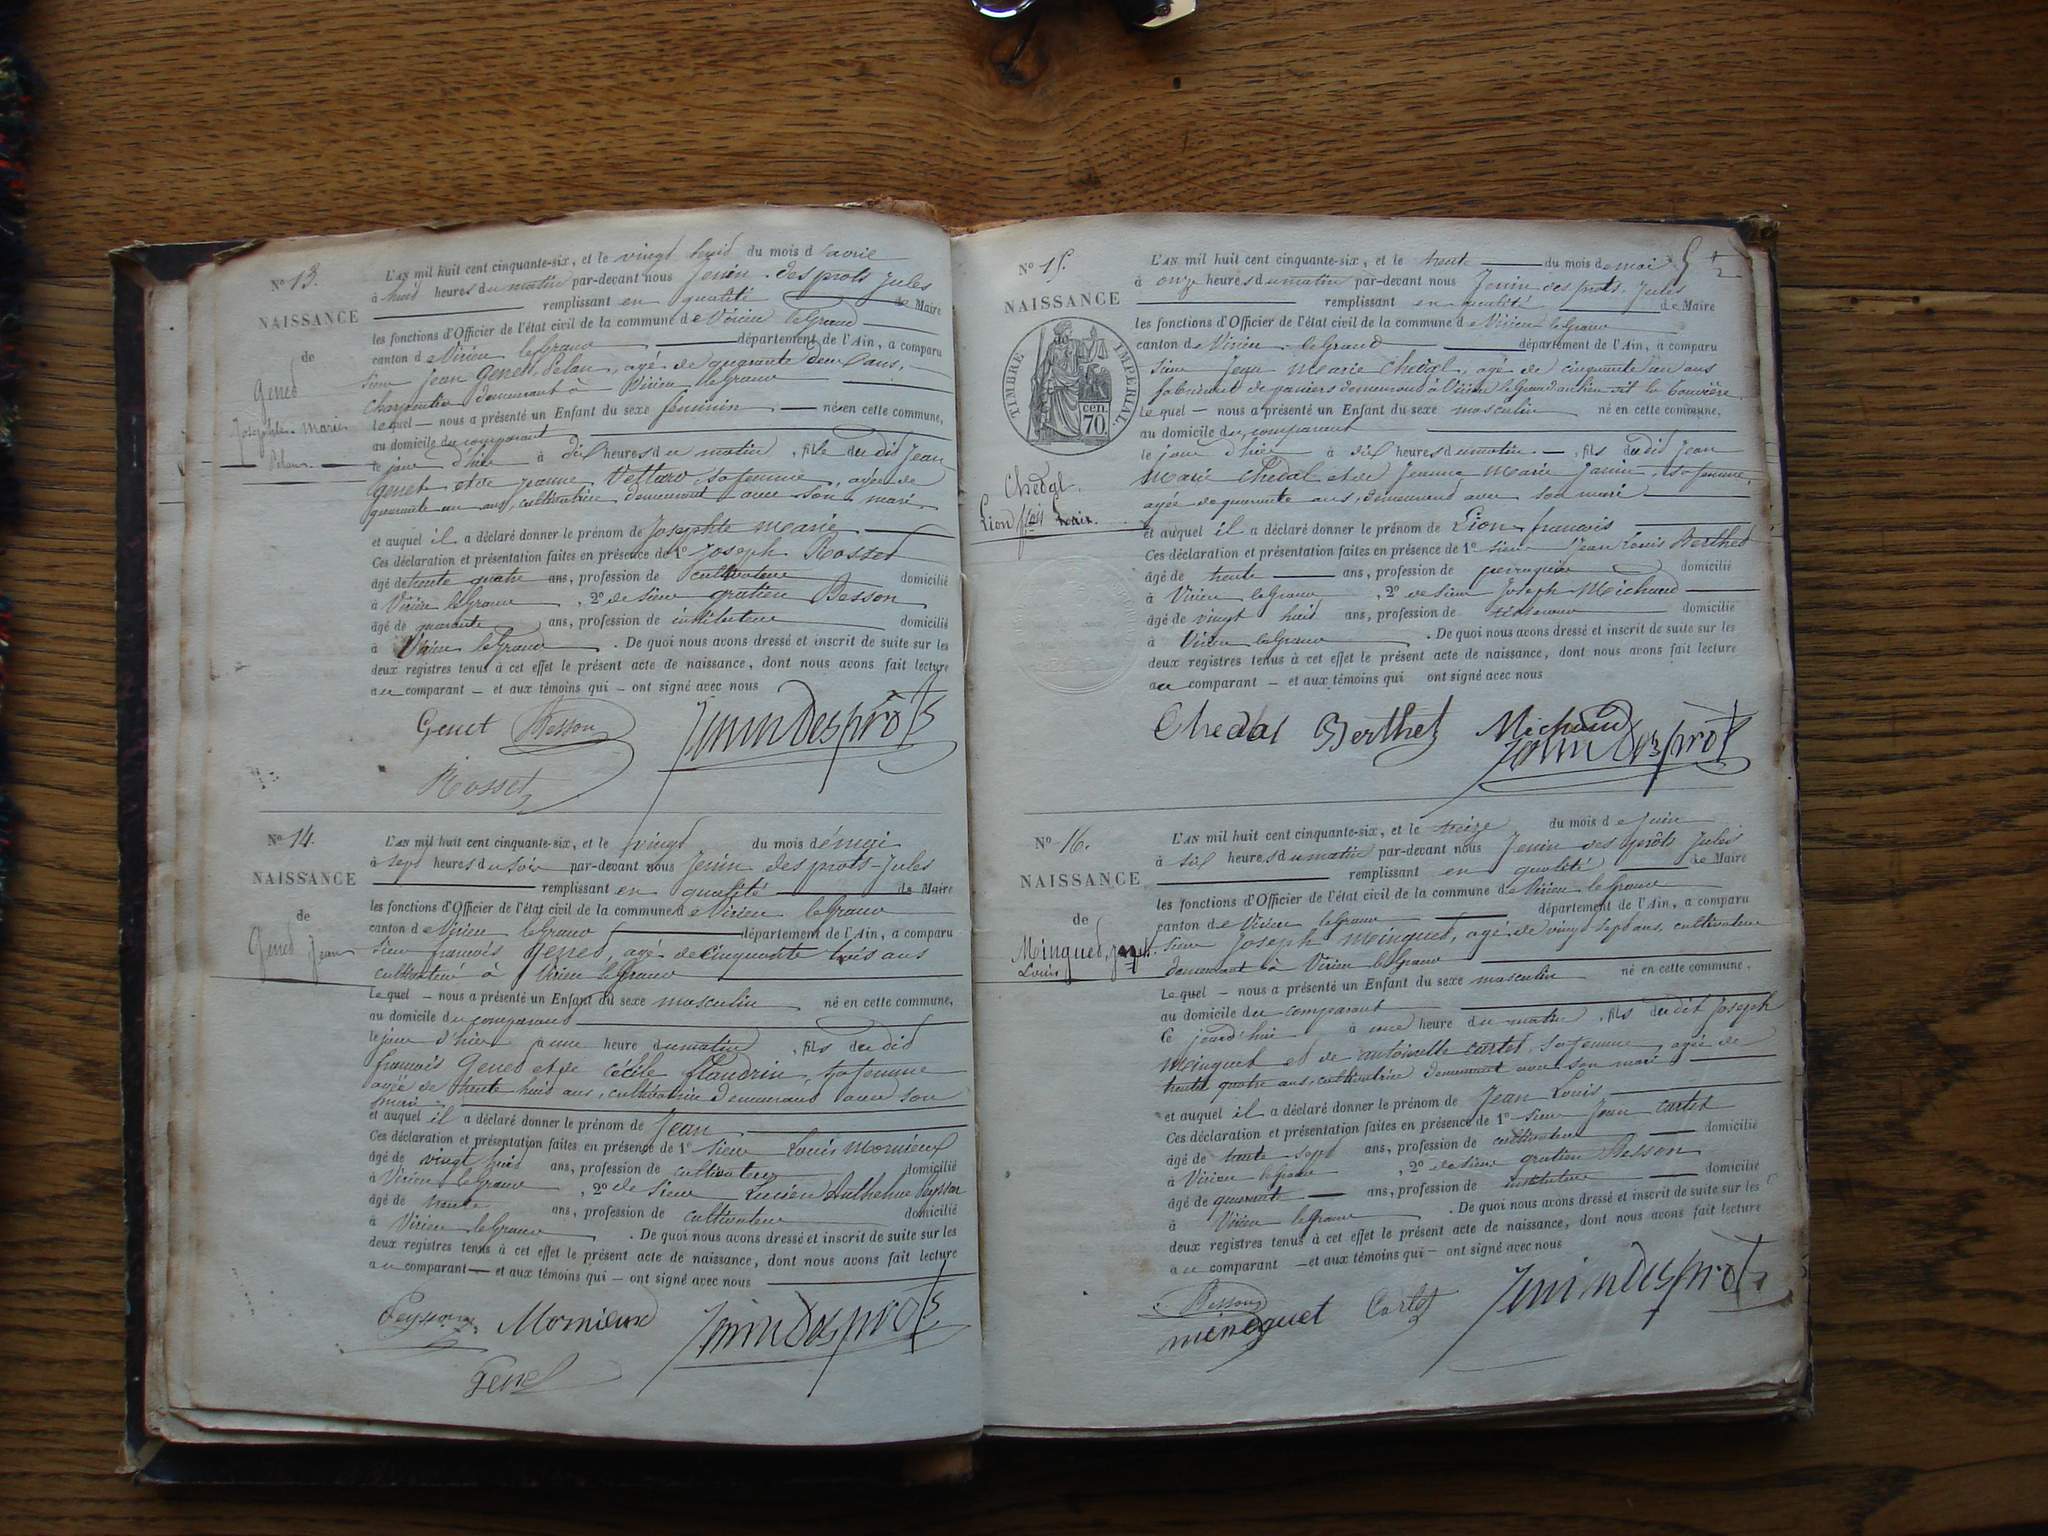 N° 13.
NAISSANCE
de
Genet
Josephte Marie
L'AN mil huit cent cinquante-six, et le vingt huit du mois d'avril
à huit heures du matin par-devant nous Jenin des prots Jules
remplissant en qualité de Maire
les fonctions d'Officier de l'état civil de la commune de Virieu le Grand
canton de Virieu le Grand département de l'Ain, a comparu
sieur Jean Genet, agé de quarante deux ans,
charpentier demeurant à Virieu le Grand
lequel – nous a présenté un Enfant du sexe féminin – né en cette commune,
au domicile du comparant
le jour d'hier à dix heures du matin, fille du dit Jean
genet et de Jeanne sa femme, agée de
quarante un ans, cultivatrice demeurant avec son mari,
et auquel il a déclaré donner le prénom de Josephte Marie
Ces déclaration et présentation faites en présence de 1° joseph Rosset
âgé de trente quatre ans, profession de cultivateur domicilié
à Virieu le Grand, 2° de sieur gratien Besson
âgé de quarante ans, profession de instituteur domicilié
à Virieu le Grand. De quoi nous avons dressé et inscrit de suite sur les
deux registres tenus à cet effet le présent acte de naissance, dont nous avons fait lecture
au comparant – et aux témoins qui – ont signé avec nous
Genet Besson Jenin Des prots
Rosset
N° 14.
NAISSANCE
de
Genet Jean
L'AN mil huit cent cinquante-six, et le vingt du mois de mai
à sept heures du soir par-devant nous Jenin des prots Jules
remplissant en qualité de Maire
les fonctions d'Officier de l'état civil de la commune de Virieu le Grand
canton de Virieu le Grand département de l'Ain, a comparu
sieur françois Genet, agé de cinquante trois ans
cultivateur à Virieu le Grand
lequel – nous a présenté un Enfant du sexe masculin né en cette commune,
au domicile du comparant
le jour d'hier à une heure du matin, fils du dit
françois Genet et de Cécile flandrin, sa femme
agée de trente huit ans, cultivatrice demeurant avec son
mari
et auquel il a déclaré donner le prénom de Jean
Ces déclaration et présentation faites en présence de 1° sieur Louis Mornieux
âgé de vingt huit ans, profession de cultivateur domicilié
à Virieu le Grand, 2° de sieur Lucien Anthelme Peysson
âgé de trente ans, profession de cultivateur domicilié
à Virieu le Grand. De quoi nous avons dressé et inscrit de suite sur les
deux registres tenus à cet effet le présent acte de naissance, dont nous avons fait lecture
au comparant – et aux témoins qui – ont signé avec nous
Peysson Mornieux Jenin Des prots
Genet
N° 15.
NAISSANCE
TIMBRE IMPERIAL.
70 cen.
Chedal
Lion fçois
5
L'AN mil huit cent cinquante-six, et le trente du mois de mai
à onze heures du matin par-devant nous Jenin des prots Jules
remplissant en qualité de Maire
les fonctions d'Officier de l'état civil de la commune de Virieu le Grand
canton de Virieu le Grand département de l'Ain, a comparu
sieur Jean Marie Chedal, agé de cinquante un ans
fabricant de paniers demeurant à Virieu le Grand au lieu dit la bouvière
lequel – nous a présenté un Enfant du sexe masculin né en cette commune,
au domicile du comparant
le jour d'hier à dix heures du matin –, fils du dit Jean
Marie Chedal et de Jeanne Marie Janin, sa femme,
agée de quarante ans, demeurant avec son mari
et auquel il a déclaré donner le prénom de Lion françois
Ces déclaration et présentation faites en présence de 1° sieur Jean Louis Berthet
âgé de trente ans, profession de perruquier domicilié
à Virieu le Grand, 2° de sieur Joseph Michaud
âgé de vingt huit ans, profession de tisserand domicilié
à Virieu le Grand. De quoi nous avons dressé et inscrit de suite sur les
deux registres tenus à cet effet le présent acte de naissance, dont nous avons fait lecture
au comparant – et aux témoins qui ont signé avec nous
Chedal Berthet Michaud
Jenin Des prots
N° 16.
NAISSANCE
de
Minguet, joseph
Louis
L'AN mil huit cent cinquante-six, et le treize du mois de juin
à six heures du matin par-devant nous Jenin des prots Jules
remplissant en qualité de Maire
les fonctions d'Officier de l'état civil de la commune de Virieu le Grand
canton de Virieu le Grand département de l'Ain, a comparu
sieur Joseph Minguet, agé de vingt sept ans, cultivateur
demeurant à Virieu le Grand
lequel – nous a présenté un Enfant du sexe masculin né en cette commune,
au domicile du comparant
le jourd'hui à une heure du matin, fils du dit Joseph
Minguet et de antoinette Cartet, sa femme, agée de
trente quatre ans, cultivatrice demeurant avec son mari
et auquel il a déclaré donner le prénom de Jean Louis
Ces déclaration et présentation faites en présence de 1° sieur Jean Cartet
âgé de trente sept ans, profession de cultivateur domicilié
à Virieu le Grand, 2° de sieur gratien Besson
âgé de quarante ans, profession de instituteur domicilié
à Virieu le Grand. De quoi nous avons dressé et inscrit de suite sur les
deux registres tenus à cet effet le présent acte de naissance, dont nous avons fait lecture
au comparant – et aux témoins qui – ont signé avec nous
Besson Cartet Jenin Des prots
minguet